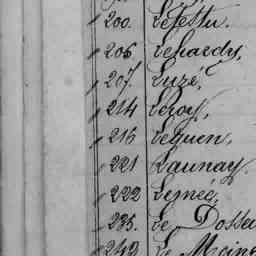 200. Lefestu.
206 Lehardy,
207. Luré,
214 Leroy,
216 Lequen,
221 Launay.
222 Lesneé,
235. Le Dosse
242 Le Moine